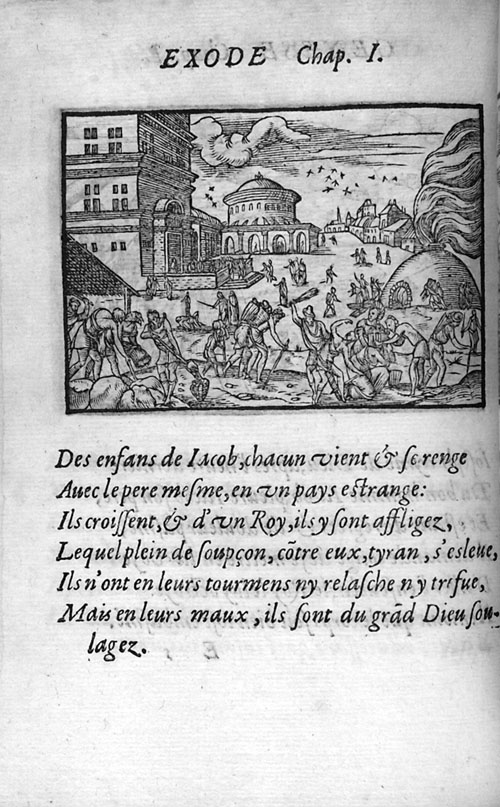 EXODE Chap. I.
Des enfans de Iacob, chacun vient & se renge
Auec le pere mesme, en vn pays estrange:
Ils croissent, & d'vn Roy, ils y sont affligez,
Lequel plein de soupçon, cõtre eux, tyran, s'esleue,
Ils n'ont en leurs tourmens ny relasche ny trefue,
Mais en leurs maux, ils sont du grãd Dieu sou-
lagez.